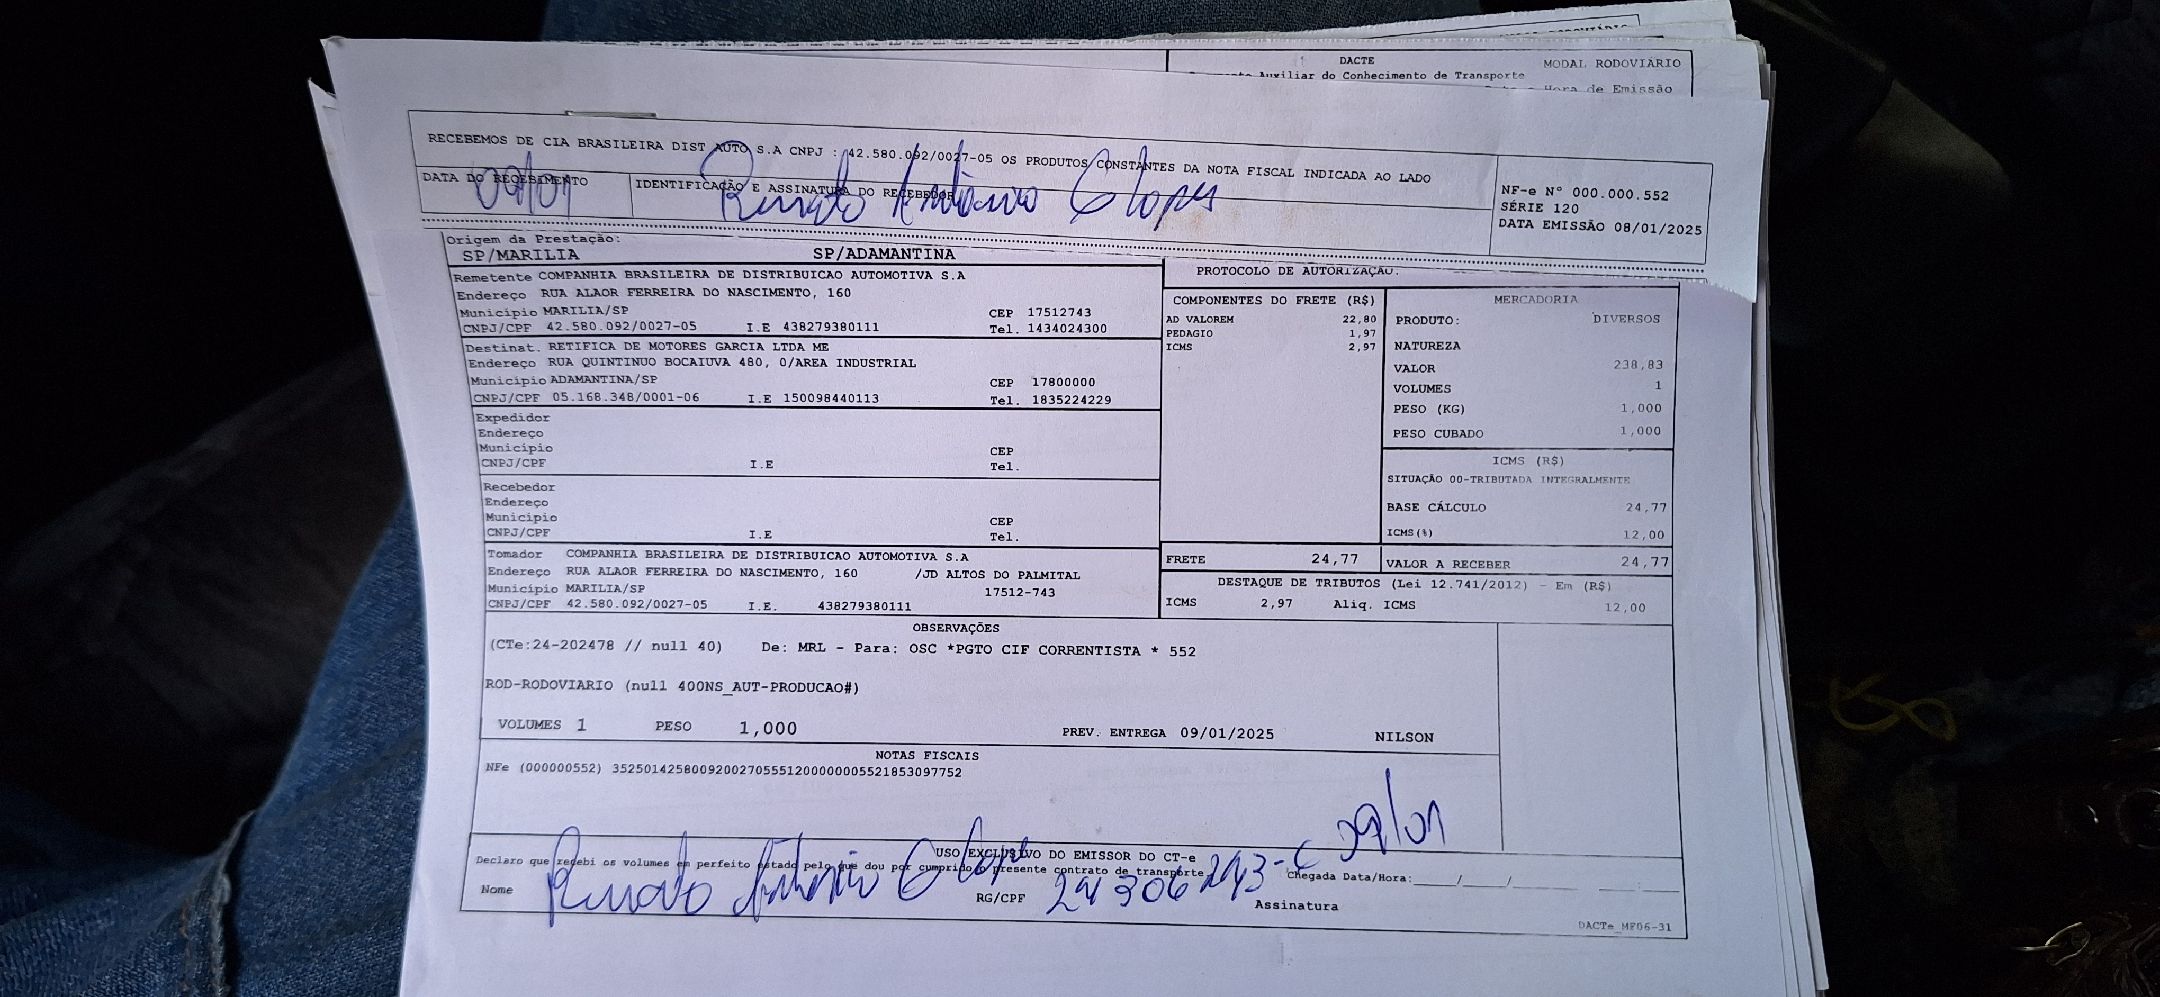 DACTE
MODAL RODOVIÁRIO
Auxiliar do Conhecimento de Transporte
Hora de Emissão
RECEBEMOS DE CIA BRASILEIRA DIST AUTO S.A CNPJ : 42.580.092/0027-05 OS PRODUTOS CONSTANTES DA NOTA FISCAL INDICADA AO LADO
DATA DO RECEBIMENTO
09/01
IDENTIFICAÇÃO E ASSINATURA DO RECEBEDOR
Renato Antônio G Lopes
NF-e N° 000.000.552
SÉRIE 120
DATA EMISSÃO 08/01/2025
Origem da Prestação:
SP/MARILIA SP/ADAMANTINA
Remetente COMPANHIA BRASILEIRA DE DISTRIBUICAO AUTOMOTIVA S.A
Endereço RUA ALAOR FERREIRA DO NASCIMENTO, 160
Município MARILIA/SP CEP 17512743
CNPJ/CPF 42.580.092/0027-05 I.E 438279380111 Tel. 1434024300
Destinat. RETIFICA DE MOTORES GARCIA LTDA ME
Endereço RUA QUINTINUO BOCAIUVA 480, 0/AREA INDUSTRIAL
Município ADAMANTINA/SP CEP 17800000
CNPJ/CPF 05.168.348/0001-06 I.E 150098440113 Tel. 1835224229
Expedidor
Endereço
Município CEP
CNPJ/CPF I.E Tel.
Recebedor
Endereço
Município CEP
CNPJ/CPF I.E Tel.
Tomador COMPANHIA BRASILEIRA DE DISTRIBUICAO AUTOMOTIVA S.A
Endereço RUA ALAOR FERREIRA DO NASCIMENTO, 160 /JD ALTOS DO PALMITAL
Município MARILIA/SP 17512-743
CNPJ/CPF 42.580.092/0027-05 I.E. 438279380111
PROTOCOLO DE AUTORIZAÇÃO:
COMPONENTES DO FRETE (R$)
AD VALOREM 22,80
PEDAGIO 1,97
ICMS 2,97
MERCADORIA
PRODUTO: DIVERSOS
NATUREZA
VALOR 238,83
VOLUMES 1
PESO (KG) 1,000
PESO CUBADO 1,000
ICMS (R$)
SITUAÇÃO 00-TRIBUTADA INTEGRALMENTE
BASE CÁLCULO 24,77
ICMS(%) 12,00
FRETE 24,77
VALOR A RECEBER 24,77
DESTAQUE DE TRIBUTOS (Lei 12.741/2012) - Em (R$)
ICMS 2,97 Aliq. ICMS 12,00
OBSERVAÇÕES
(CTe:24-202478 // null 40) De: MRL - Para: OSC *PGTO CIF CORRENTISTA * 552
ROD-RODOVIARIO (null 400NS_AUT-PRODUCAO#)
VOLUMES 1 PESO 1,000 PREV. ENTREGA 09/01/2025 NILSON
NOTAS FISCAIS
NFe (000000552) 35250142580092002705551200000005521853097752
09/01
USO EXCLUSIVO DO EMISSOR DO CT-e
Declaro que recebi os volumes em perfeito estado pelo que dou por cumprido o presente contrato de transporte
Chegada Data/Hora:____/____/______ ____:____
Nome Renato Antônio G Lopes RG/CPF Assinatura
DACTe_MF06-31